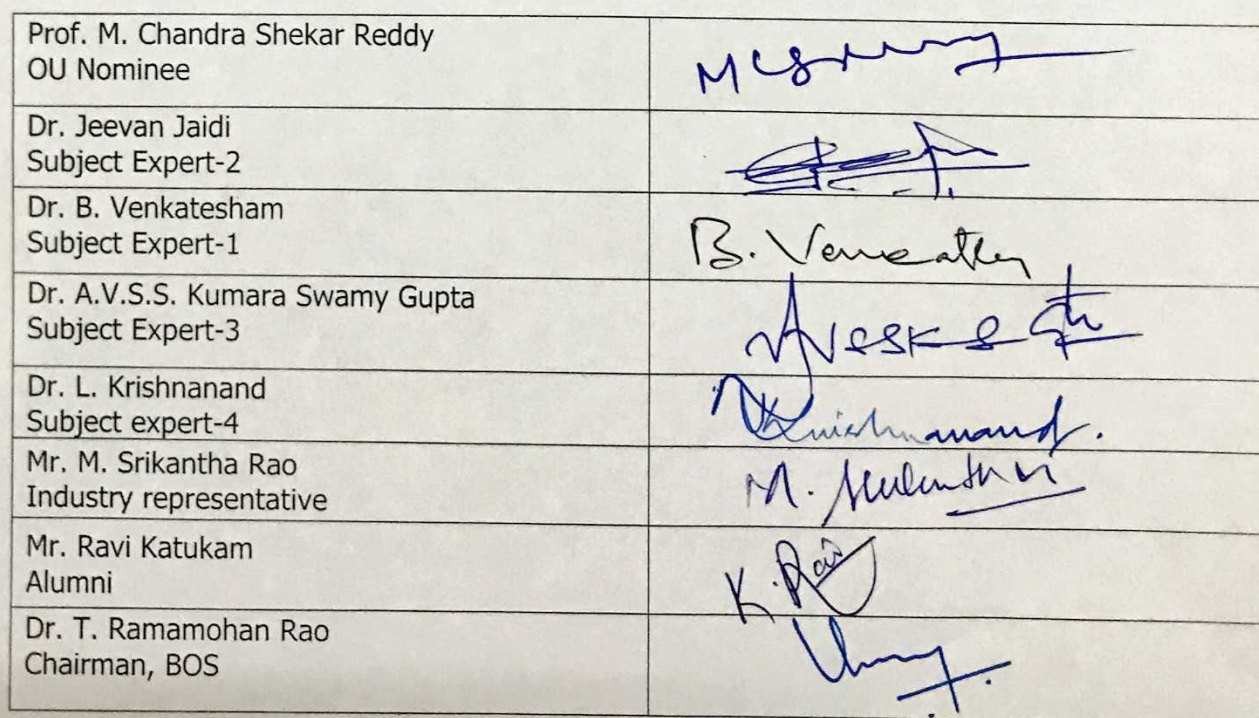 Prof. M. Chandra Shekar Reddy
OU Nominee
Dr. Jeevan Jaidi
Subject Expert-2
Dr. B. Venkatesham
Subject Expert-1
B. Venkatesh
Dr. A.V.S.S. Kumara Swamy Gupta
Subject Expert-3
Dr. L. Krishnanand
Subject expert-4
Krishnanand.
Mr. M. Srikantha Rao
Industry representative
M.
Mr. Ravi Katukam
Alumni
K. Ravi
Dr. T. Ramamohan Rao
Chairman, BOS